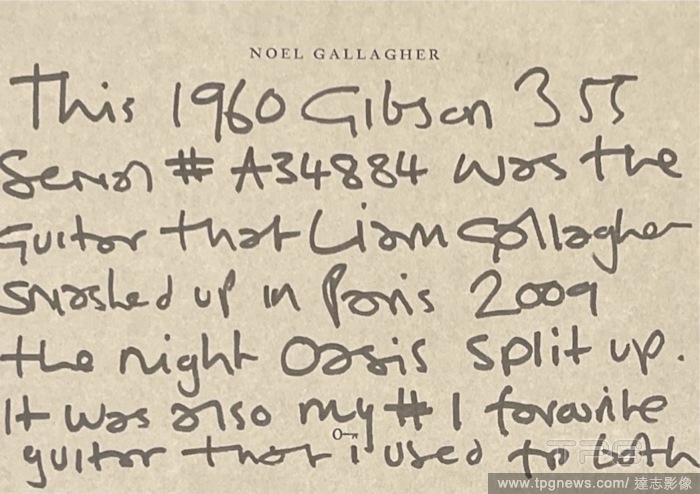 NOEL GALLAGHER
This 1960 Gibson 355
Serial # A34884 was the
Guitar that Liam Gallagher
smashed up in Paris 2009
the night Oasis split up.
It was also my #1 favourite
guitar that i used to both
TPG
www.tpgnews.com/達志影像